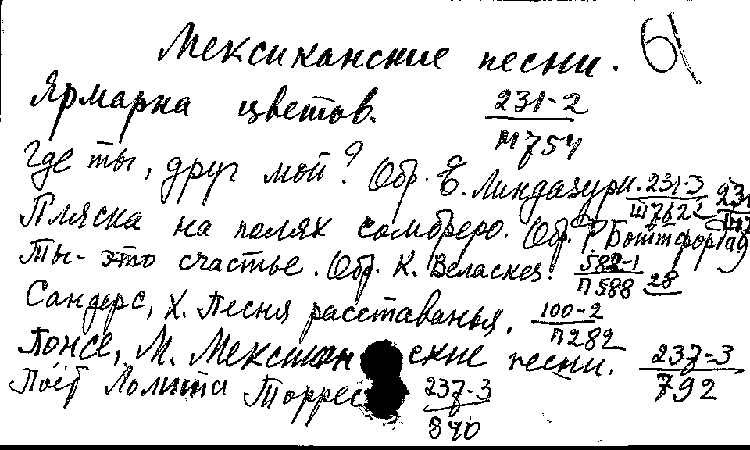 Мексиканские песни. 61
Ярмарка цветов. 231-2
М754
Где ты, друг мой? Обр. Е. Линдазури. 231-3
Ш762
Пляска на полях сомбреро. Обр. Р. Боттфорта
Ты- это счастье. Обр. К. Веласкез. 582-1
П588 28
Сандерс, Х. Песня расставанья. 100-2
П282
Понсе, М. Мексиканские песни. 237-3
792
Поёт Лолита Торрес 237-3
840